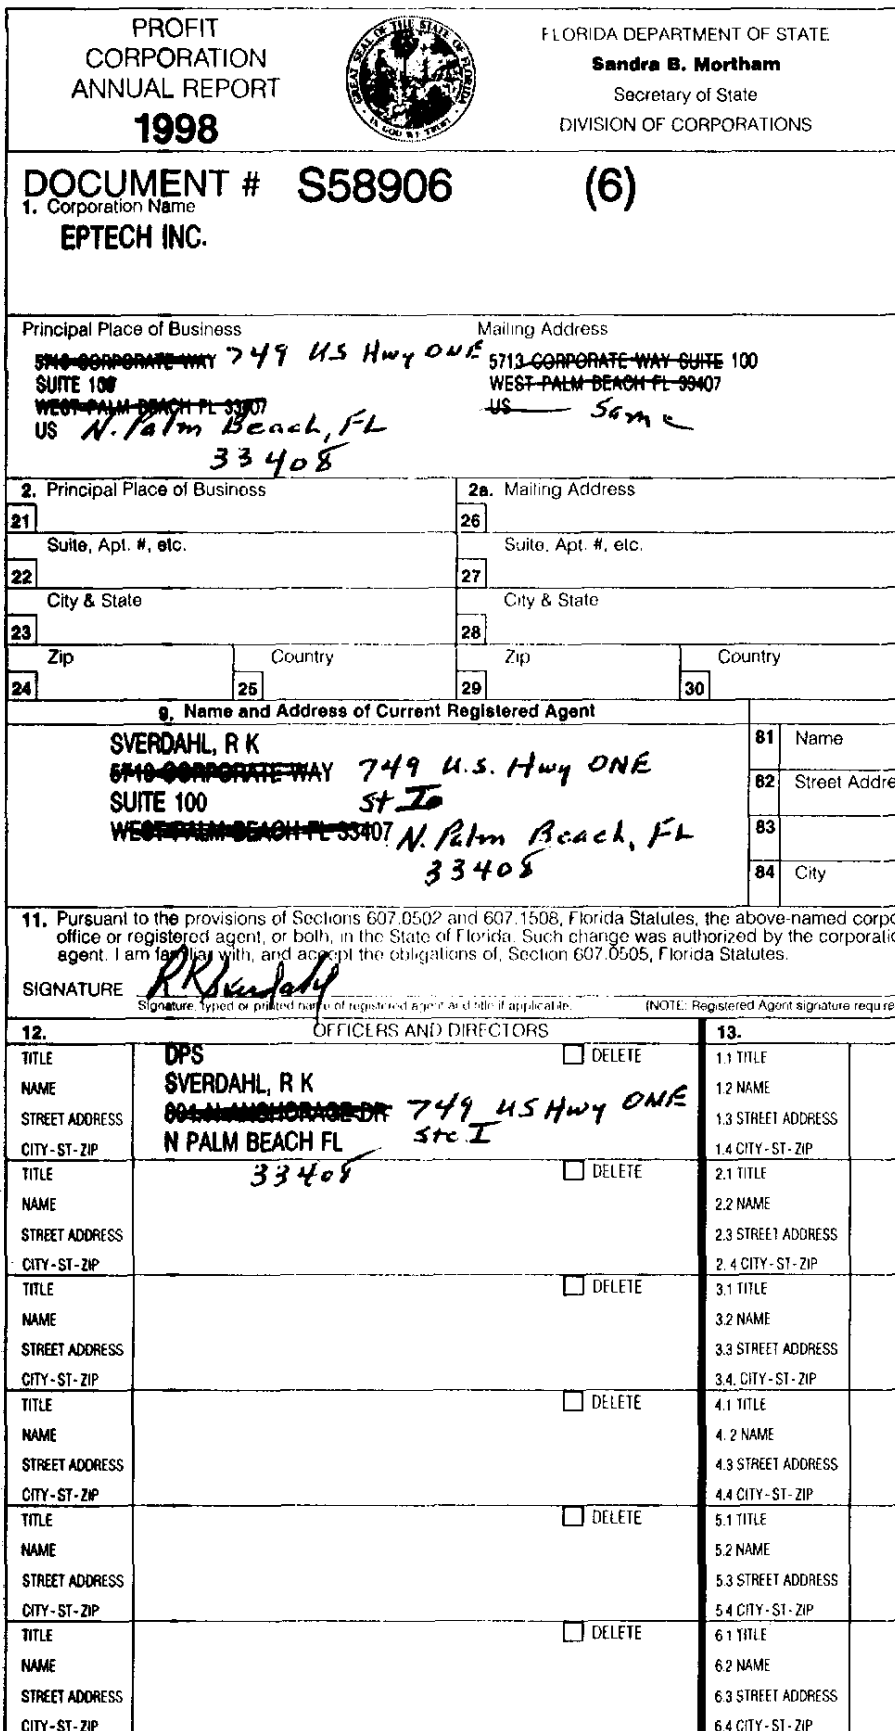 PROFIT
CORPORATION
ANNUAL REPORT
1998
FLORIDA DEPARTMENT OF STATE
Sandra B. Mortham
Secretary of State
DIVISION OF CORPORATIONS
DOCUMENT # S58906 (6)
1. Corporation Name
EPTECH INC.
Principal Place of Business
CORPORATE WAY 749 US Hwy ONE
SUITE 100
WEST PALM BEACH FL 33407
US N. Palm Beach, FL
33408
Mailing Address
5713 CORPORATE WAY SUITE 100
WEST PALM BEACH FL 33407
US Same
2. Principal Place of Business
2a. Mailing Address
21
26
Suite, Apt. #, etc.
Suite, Apt. #, etc.
22
27
City & State
City & State
23
28
Zip
Country
Zip
Country
24
25
29
30
9. Name and Address of Current Registered Agent
SVERDAHL, R K
CORPORATE WAY 749 U.S. Hwy ONE
SUITE 100 St I
WEST PALM BEACH FL 33407 N. Palm Beach, FL
33408
81 Name
82 Street Addre
83
84 City
11. Pursuant to the provisions of Sections 607.0502 and 607.1508, Florida Statutes, the above-named corpo
office or registered agent, or both, in the State of Florida. Such change was authorized by the corporatio
agent. I am familiar with, and accept the obligations of, Section 607.0505, Florida Statutes.
SIGNATURE RKSverdahl
Signature, typed or printed name of registered agent and title if applicable. (NOTE: Registered Agent signature require
12. OFFICERS AND DIRECTORS
13.
TITLE DPS DELETE
NAME SVERDAHL, R K
STREET ADDRESS N ANCHORAGE DR 749 US Hwy ONE
Ste I
CITY-ST-ZIP N PALM BEACH FL
33408
1.1 TITLE
1.2 NAME
1.3 STREET ADDRESS
1.4 CITY-ST-ZIP
TITLE DELETE
NAME
STREET ADDRESS
CITY-ST-ZIP
2.1 TITLE
2.2 NAME
2.3 STREET ADDRESS
2.4 CITY-ST-ZIP
TITLE DELETE
NAME
STREET ADDRESS
CITY-ST-ZIP
3.1 TITLE
3.2 NAME
3.3 STREET ADDRESS
3.4. CITY-ST-ZIP
TITLE DELETE
NAME
STREET ADDRESS
CITY-ST-ZIP
4.1 TITLE
4.2 NAME
4.3 STREET ADDRESS
4.4 CITY-ST-ZIP
TITLE DELETE
NAME
STREET ADDRESS
CITY-ST-ZIP
5.1 TITLE
5.2 NAME
5.3 STREET ADDRESS
5.4 CITY-ST-ZIP
TITLE DELETE
NAME
STREET ADDRESS
CITY-ST-ZIP
6.1 TITLE
6.2 NAME
6.3 STREET ADDRESS
6.4 CITY-ST-ZIP